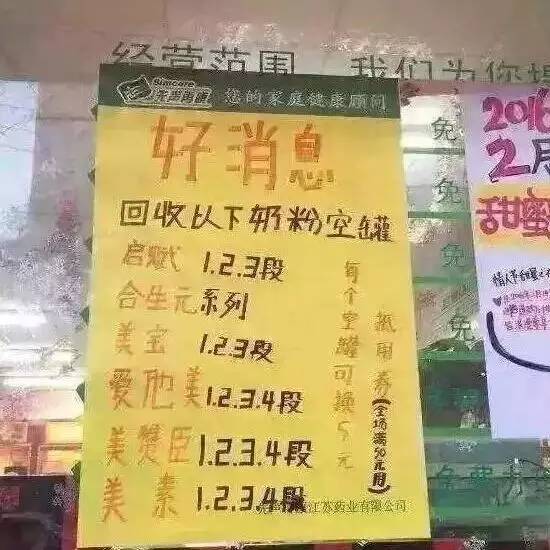 经营范围 我们为您提
Simcare
先声再康 您的家庭健康顾问
好消息
回收以下奶粉空罐
启赋 1.2.3段
合生元系列
美宝 1.2.3段
爱他美 1.2.3.4段
美赞臣 1.2.3.4段
美素 1.2.3.4段
每个空罐可换5元
抵用券(全场满50元用)
江苏药业有限公司
免
免
免
免
免
免费
2016
2月
甜蜜